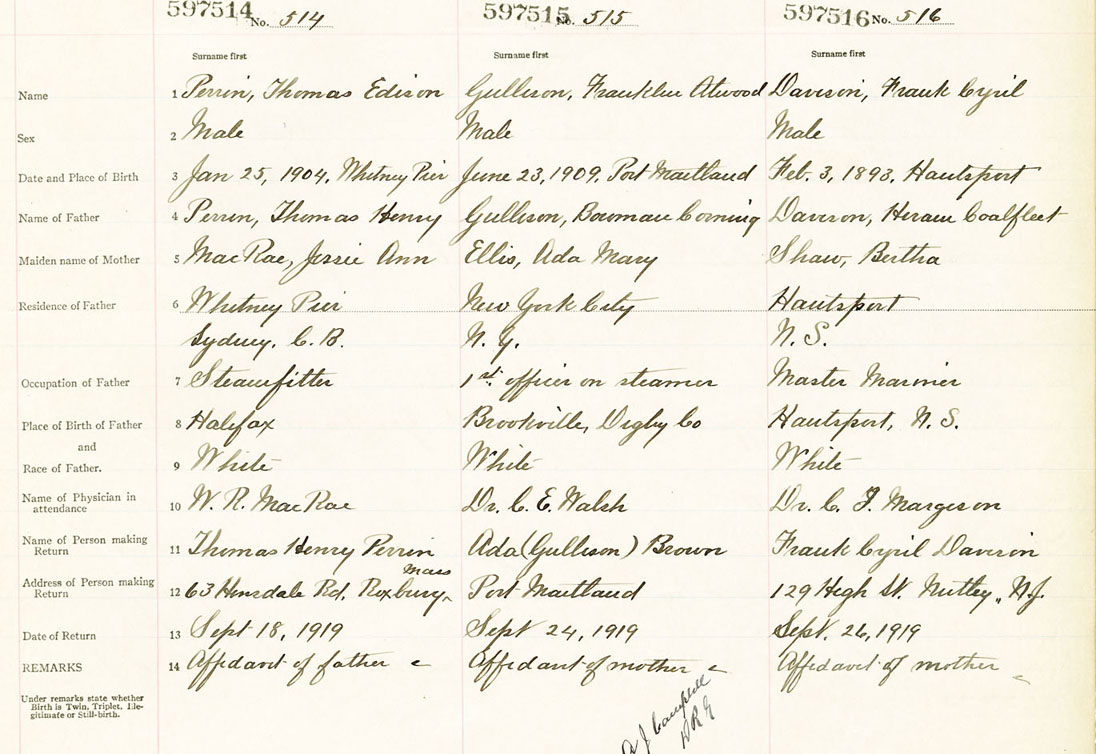 597514 No. 514 597515 No. 515 597516 No. 516
Surname first Surname first Surname first
Name 1 Perrin, Thomas Edison Gullison, Franklin Atwood Davison, Frank Cyril
Sex 2 Male Male Male
Date and Place of Birth 3 Jan 25, 1904, Whitney Pier June 23, 1909, Port Maitland Feb. 3, 1893, Hantsport
Name of Father 4 Perrin, Thomas Henry Gullison, Bowman Corning Davison, Hiram Coalfleet
Maiden name of Mother 5 MacRae, Jessie Ann Ellis, Ada Mary Shaw, Bertha
Residence of Father 6 Whitney Pier New York City Hantsport
Sydney, C.B. N.Y. N.S.
Occupation of Father 7 Steamfitter 1st officer on steamer Master Mariner
Place of Birth of Father 8 Halifax Brookville, Digby Co Hantsport, N.S.
and
Race of Father. 9 White White White
Name of Physician in attendance 10 W. R. MacRae Dr. C. E. Walsh Dr. C. J. Margeson
Name of Person making Return 11 Thomas Henry Perrin Ada (Gullison) Brown Frank Cyril Davison
Address of Person making Return 12 63 Hinsdale Rd, Roxbury, Mass Port Maitland 129 High St. Nutley, N.J.
Date of Return 13 Sept 18, 1919 Sept 24, 1919 Sept. 26, 1919
REMARKS 14 Affidavit of father c Affidavit of mother c Affidavit of mother c
Under remarks state whether
Birth is Twin, Triplet, Ille-
gitimate or Still-birth.
A J Campbell
DRG